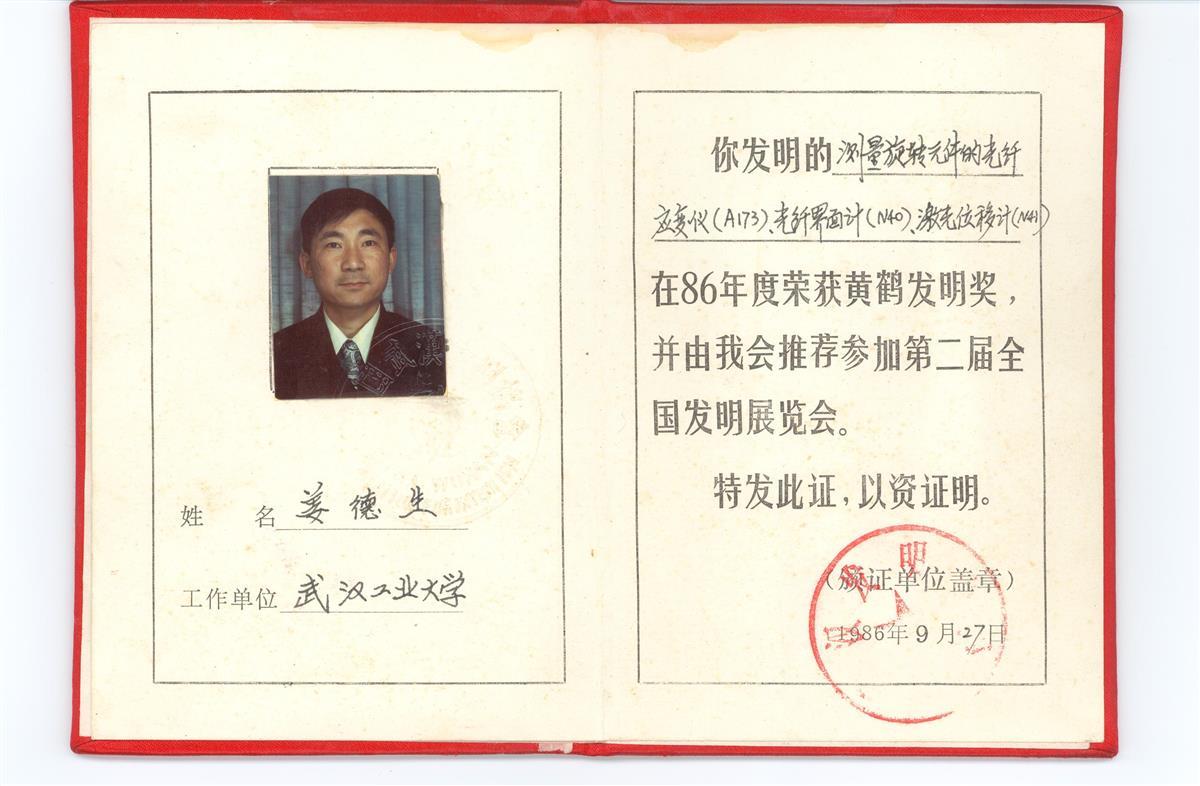 姓 名 姜德生
工作单位 武汉工业大学
你发明的 测量旋转元件的光纤
应变仪(A173)、光纤界面计(N40)、激光位移计(N41)
在86年度荣获黄鹤发明奖，
并由我会推荐参加第二届全
国发明展览会。
特发此证，以资证明。
（颁证单位盖章）
1986年9月27日